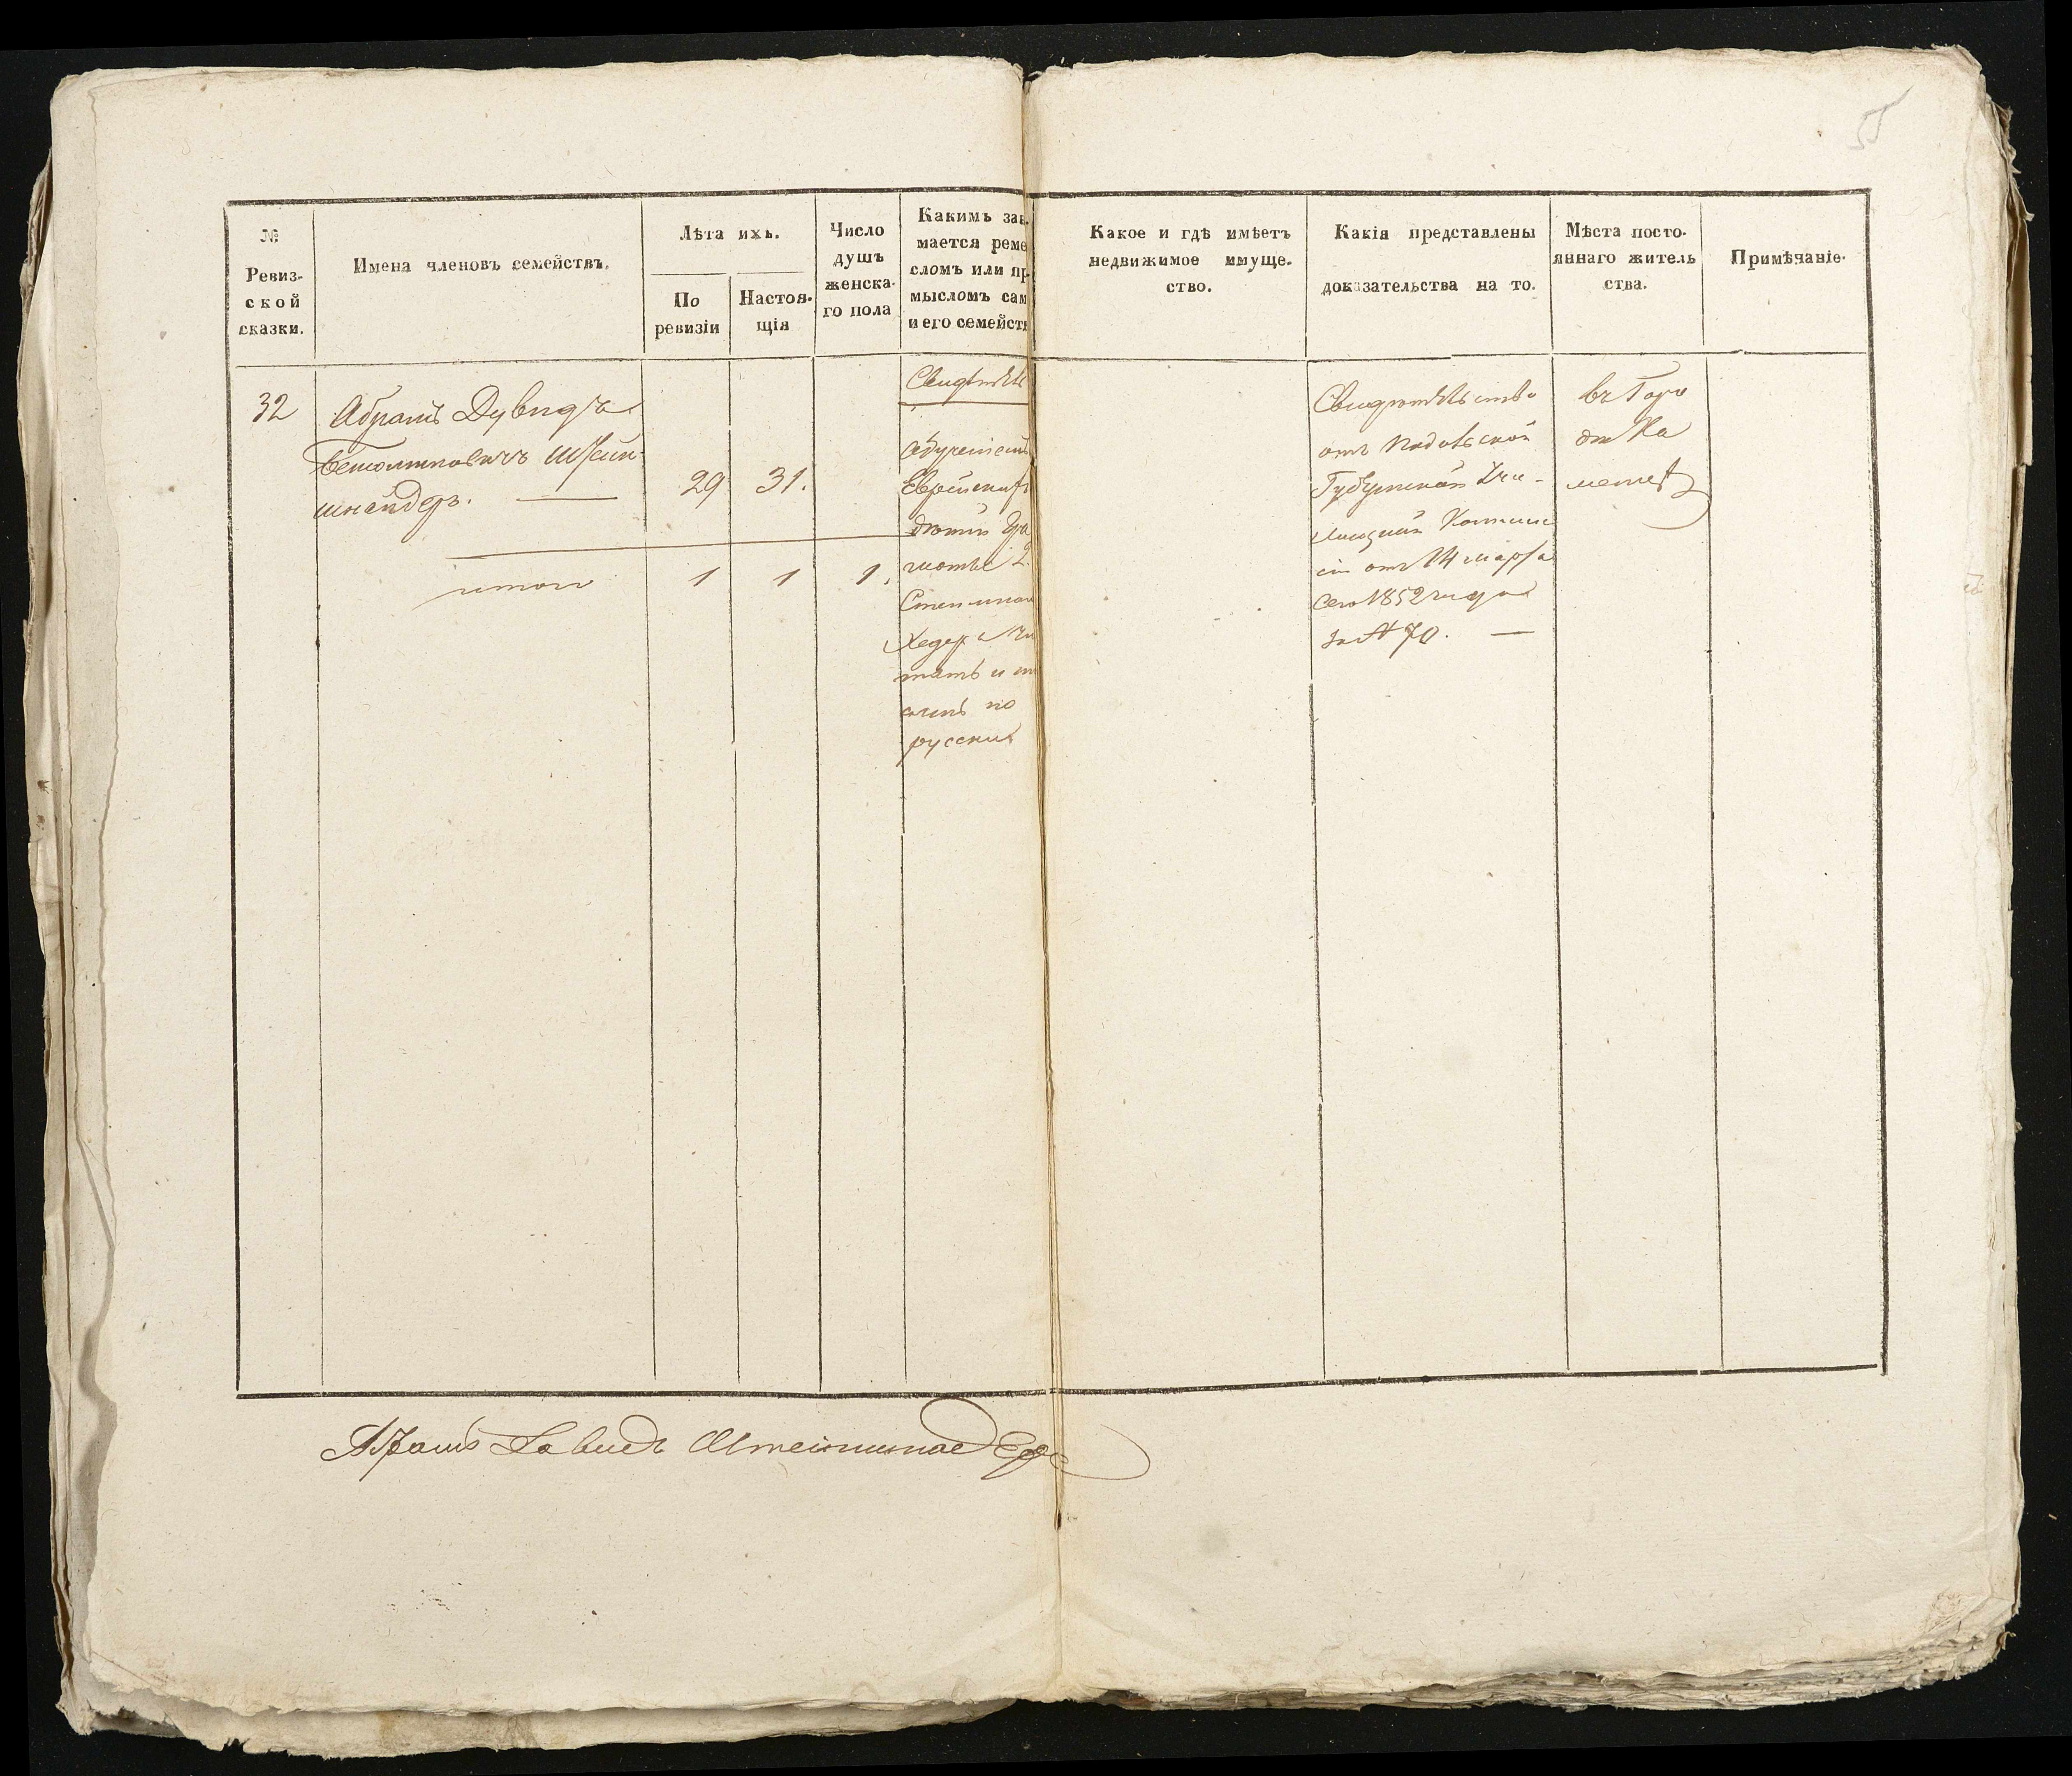 55
№
Ревиз-
ской
сказки.
Имена членовъ семействъ.
Лѣта ихъ.
По
ревизіи
Настоя-
щія
Число
душъ
женска-
го пола
Какимъ зан
мается реме
сломъ или пр
мысломъ сам
и его семейств
Какое и гдѣ имѣетъ
недвижимое имуще-
ство.
Какія представлены
доказательства на то.
Мѣста посто-
яннаго житель
ства.
Примѣчаніе.
32
Абрамъ Дувидъ
Штейн
шнейдеръ.
29
31.
итого
1
1
1.
Свидѣтель
Обученіемъ
Еврейскихъ
дѣтей Гра
мотѣ 2.
Степени
Хедер Чи
тать и пи
сать по
русски
Свидѣтельство
отъ Подольской
Губернской Учи-
лищной Коммис
іи отъ 14 марта
сего 1852 года
за № 70.
въ Горо
дѣ Ка
менецѣ
Абрамъ Давидъ Штейншнейдеръ